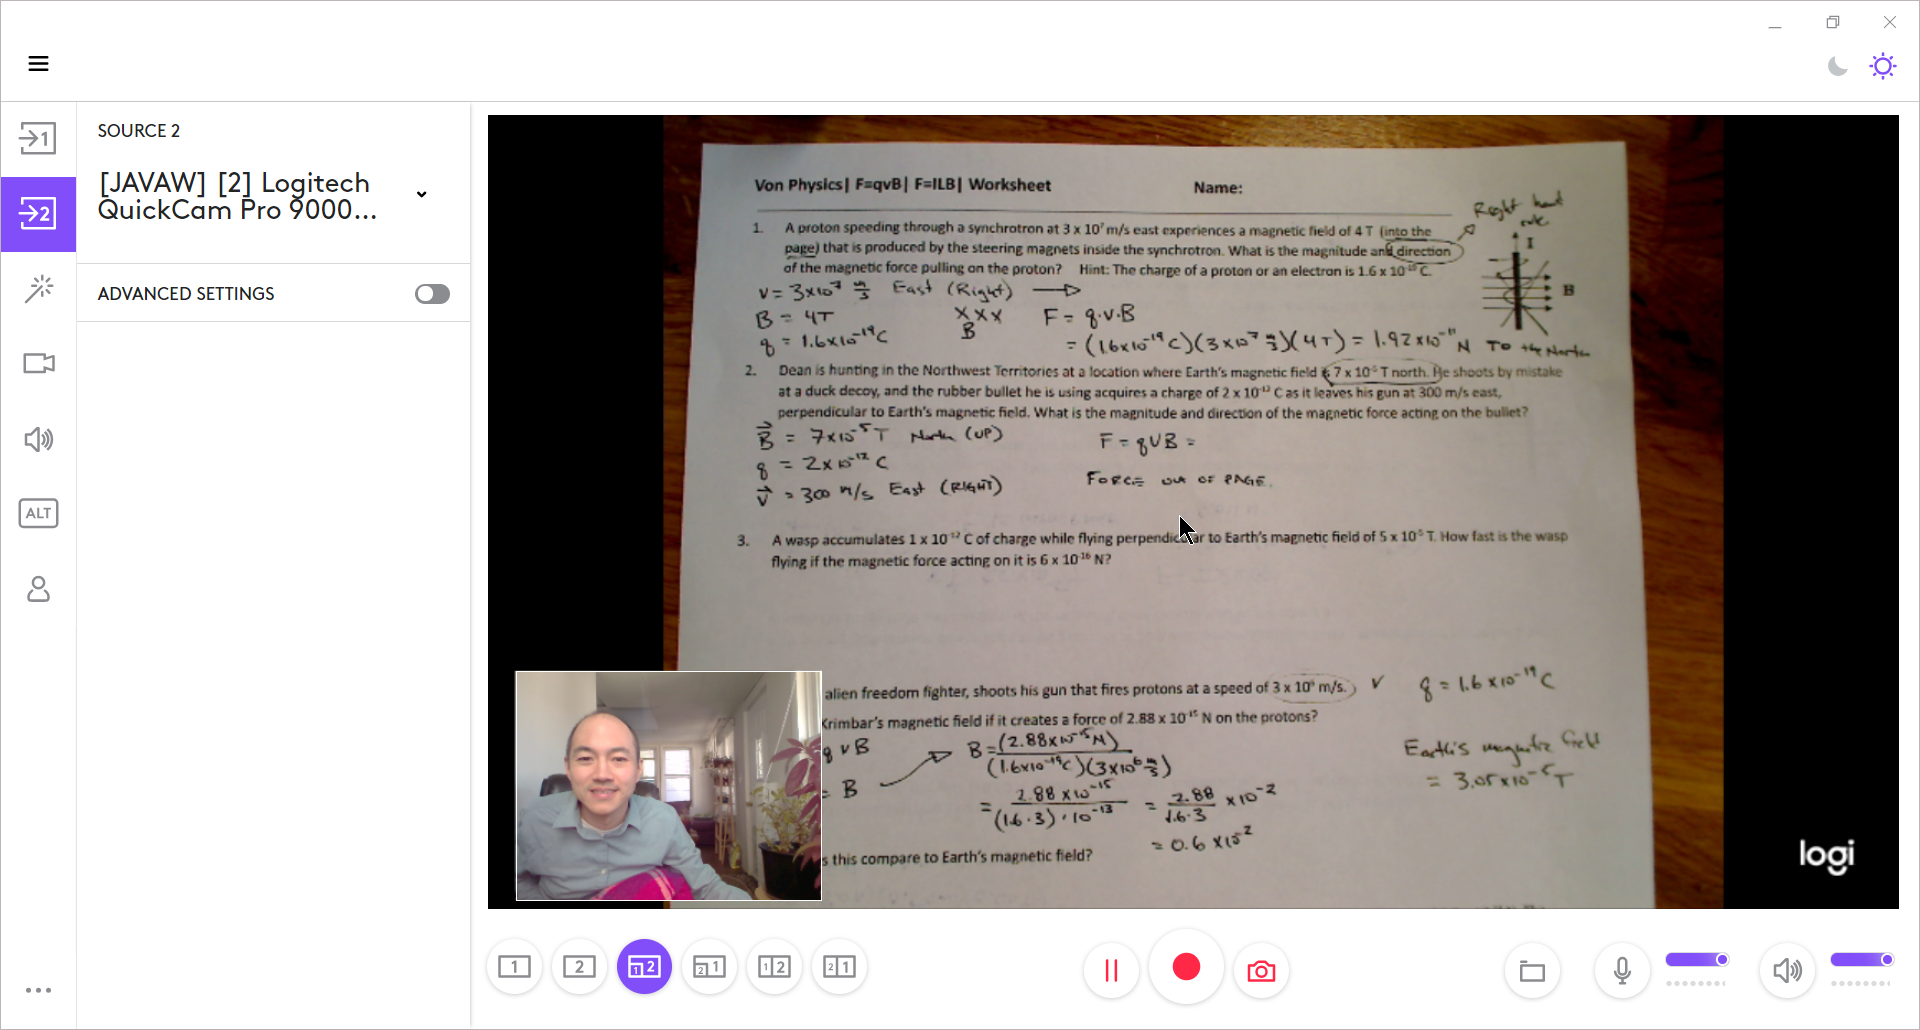 SOURCE 2
[JAVAW] [2] Logitech
QuickCam Pro 9000...
ADVANCED SETTINGS
ALT
Von Physics| F=qvB| F=ILB| Worksheet Name:
Right hand
rule
1. A proton speeding through a synchrotron at 3 x 10⁷ m/s east experiences a magnetic field of 4 T (into the
page) that is produced by the steering magnets inside the synchrotron. What is the magnitude and direction
of the magnetic force pulling on the proton? Hint: The charge of a proton or an electron is 1.6 x 10⁻¹⁹ C.
I
B
v = 3x10⁷ m/s East (Right)
B = 4T XXX F = q·v·B
B
q = 1.6x10⁻¹⁹C = (1.6x10⁻¹⁹C)(3x10⁷ m/s)(4T) = 1.92x10⁻¹¹ N To the North
2. Dean is hunting in the Northwest Territories at a location where Earth's magnetic field is 7 x 10⁻⁵ T north. He shoots by mistake
at a duck decoy, and the rubber bullet he is using acquires a charge of 2 x 10⁻¹² C as it leaves his gun at 300 m/s east,
perpendicular to Earth's magnetic field. What is the magnitude and direction of the magnetic force acting on the bullet?
B = 7x10⁻⁵T North (UP) F = qVB =
q = 2x10⁻¹² C
V = 300 m/s East (RIGHT) FORCE out OF PAGE.
3. A wasp accumulates 1 x 10⁻¹² C of charge while flying perpendicular to Earth's magnetic field of 5 x 10⁻⁵ T. How fast is the wasp
flying if the magnetic force acting on it is 6 x 10⁻¹⁶ N?
alien freedom fighter, shoots his gun that fires protons at a speed of 3 x 10⁶ m/s. V q = 1.6x10⁻¹⁹C
Krimbar's magnetic field if it creates a force of 2.88 x 10⁻¹⁵ N on the protons?
q v B B = (2.88x10⁻¹⁵N)
(1.6x10⁻¹⁹C)(3x10⁶ m/s)
Earth's magnetic field
= 3.05x10⁻⁵T
= B
= 2.88 x10⁻¹⁵ = 2.88 x10⁻²
(1.6·3)·10⁻¹³ 1.6·3
= 0.6 x10⁻²
s this compare to Earth's magnetic field?
logi
1 2 1 2 2 1 1 2 2 1